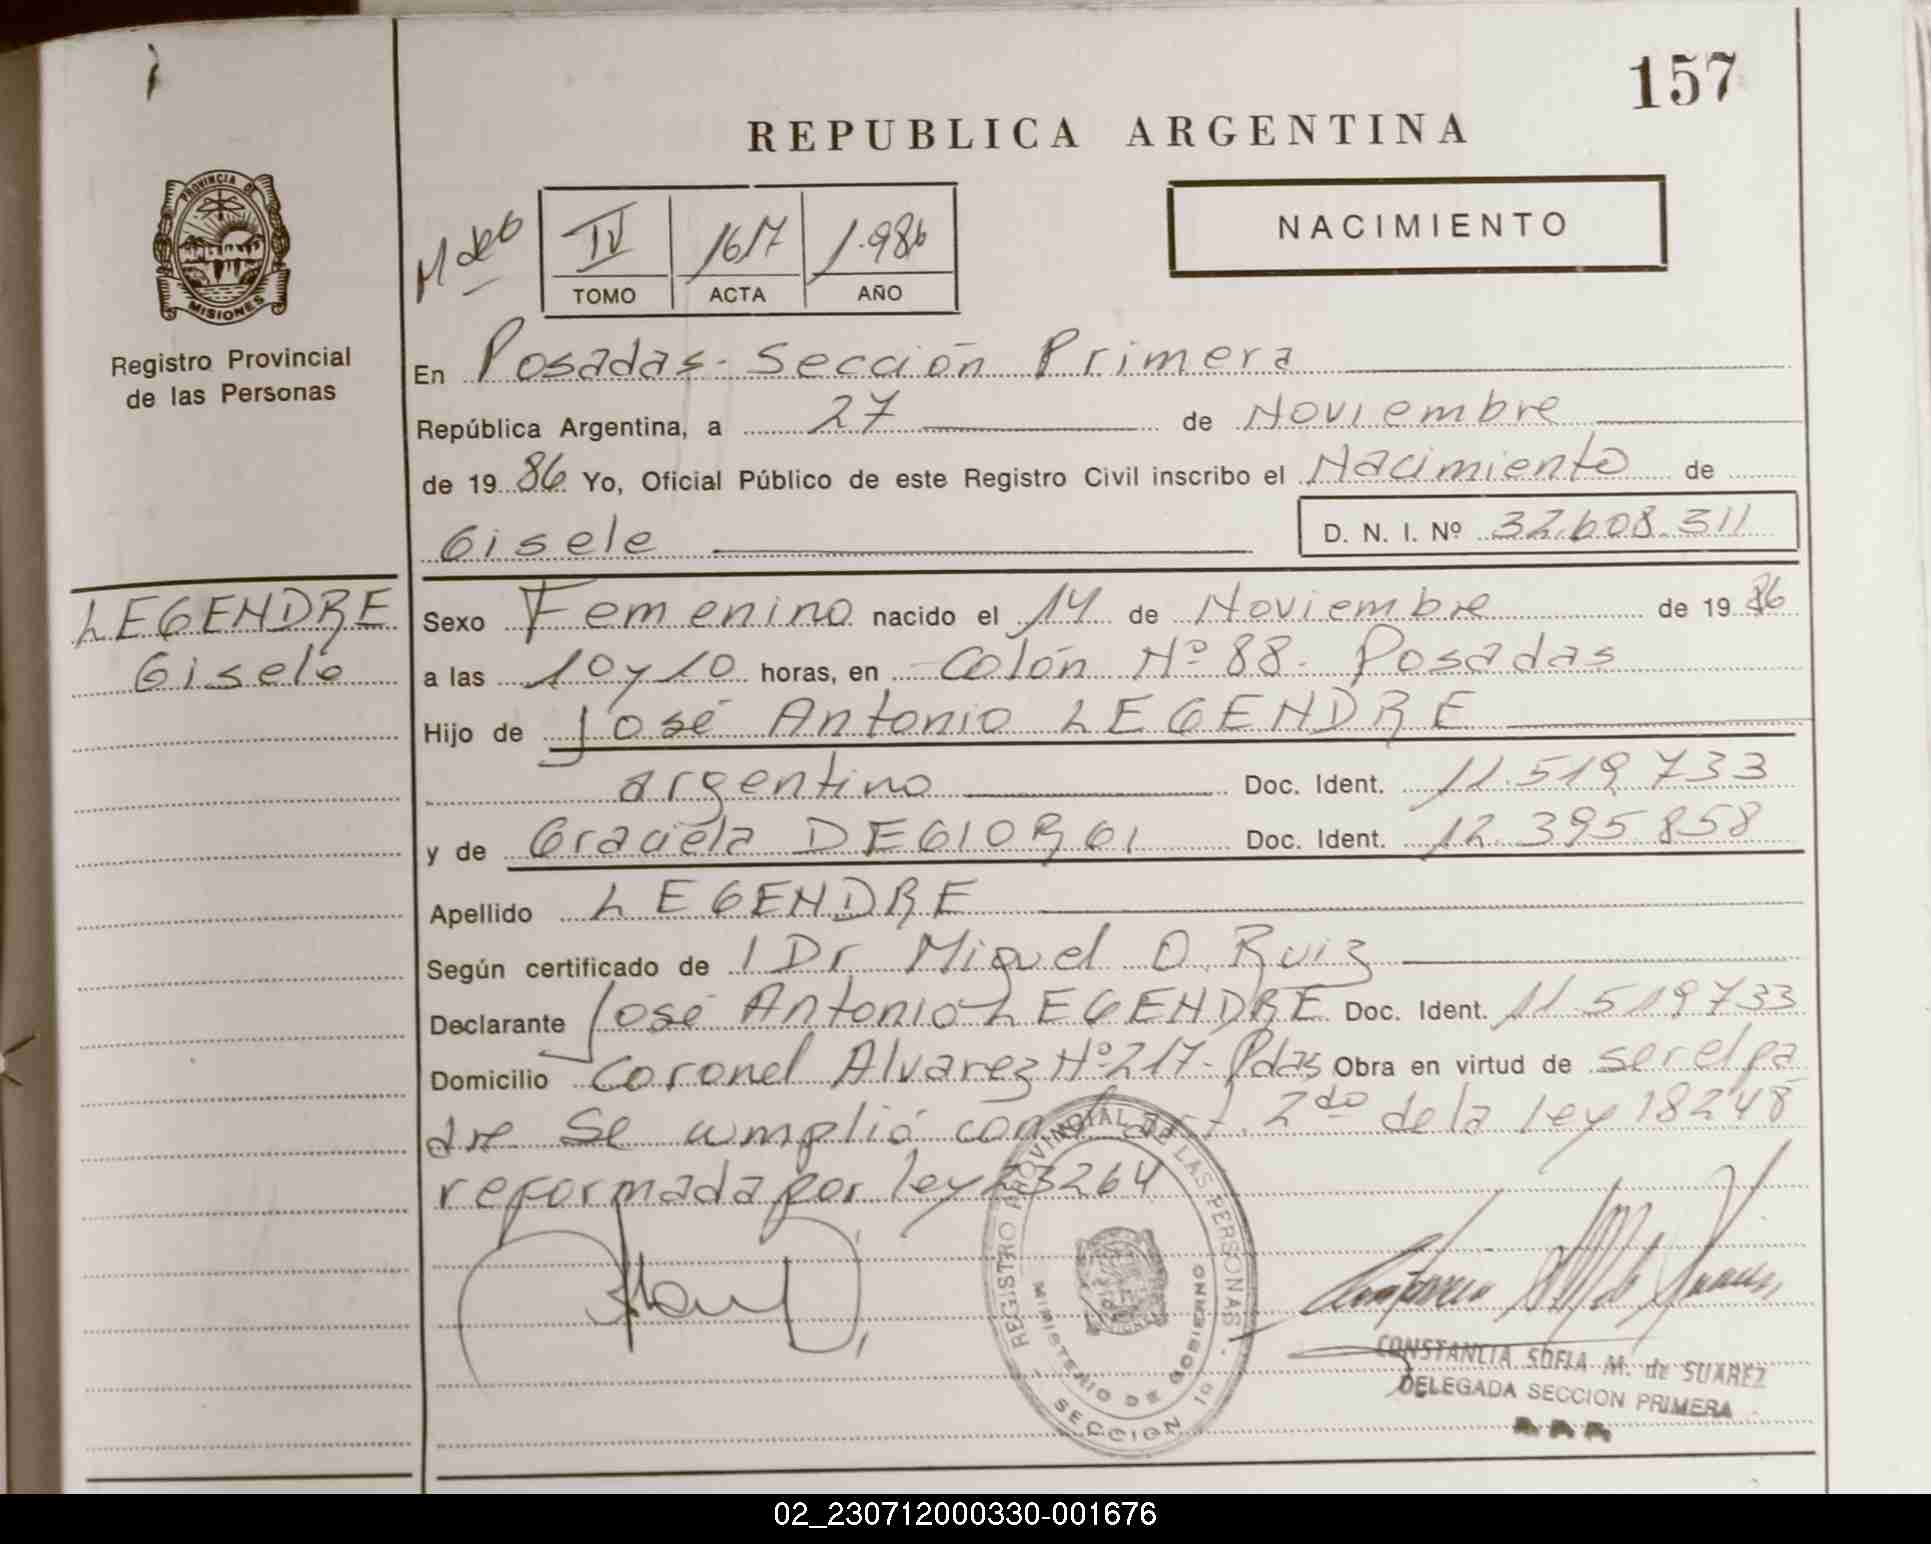 157
REPUBLICA ARGENTINA
PROVINCIA DE
MISIONES
Registro Provincial
de las Personas
IV 1617 1.986
TOMO ACTA AÑO
NACIMIENTO
En Posadas - Sección Primera
República Argentina, a 27 de Noviembre
de 19 86 Yo, Oficial Público de este Registro Civil inscribo el Nacimiento de
Gisele D. N. I. Nº 32.608.311
LEGENDRE
Gisele
Sexo Femenino nacido el 14 de Noviembre de 19 86
a las 10 y 10 horas, en Colón Nº 88 - Posadas
Hijo de José Antonio LEGENDRE
argentino Doc. Ident. 11.519.733
y de Graciela DEGIORGI Doc. Ident. 12.395.858
Apellido LEGENDRE
Según certificado de Dr Miguel O. Ruiz
Declarante José Antonio LEGENDRE Doc. Ident. 11.519.733
Domicilio Coronel Alvarez Nº 217 - Pdas Obra en virtud de ser el pa
dre Se cumplió con 2do de la ley 18248
reformada por ley 23264
REGISTRO PROVINCIAL DE LAS PERSONAS
MINISTERIO DE GOBIERNO
SECCION 1º
CONSTANCIA SOFIA M. de SUAREZ
DELEGADA SECCION PRIMERA
02_230712000330-001676